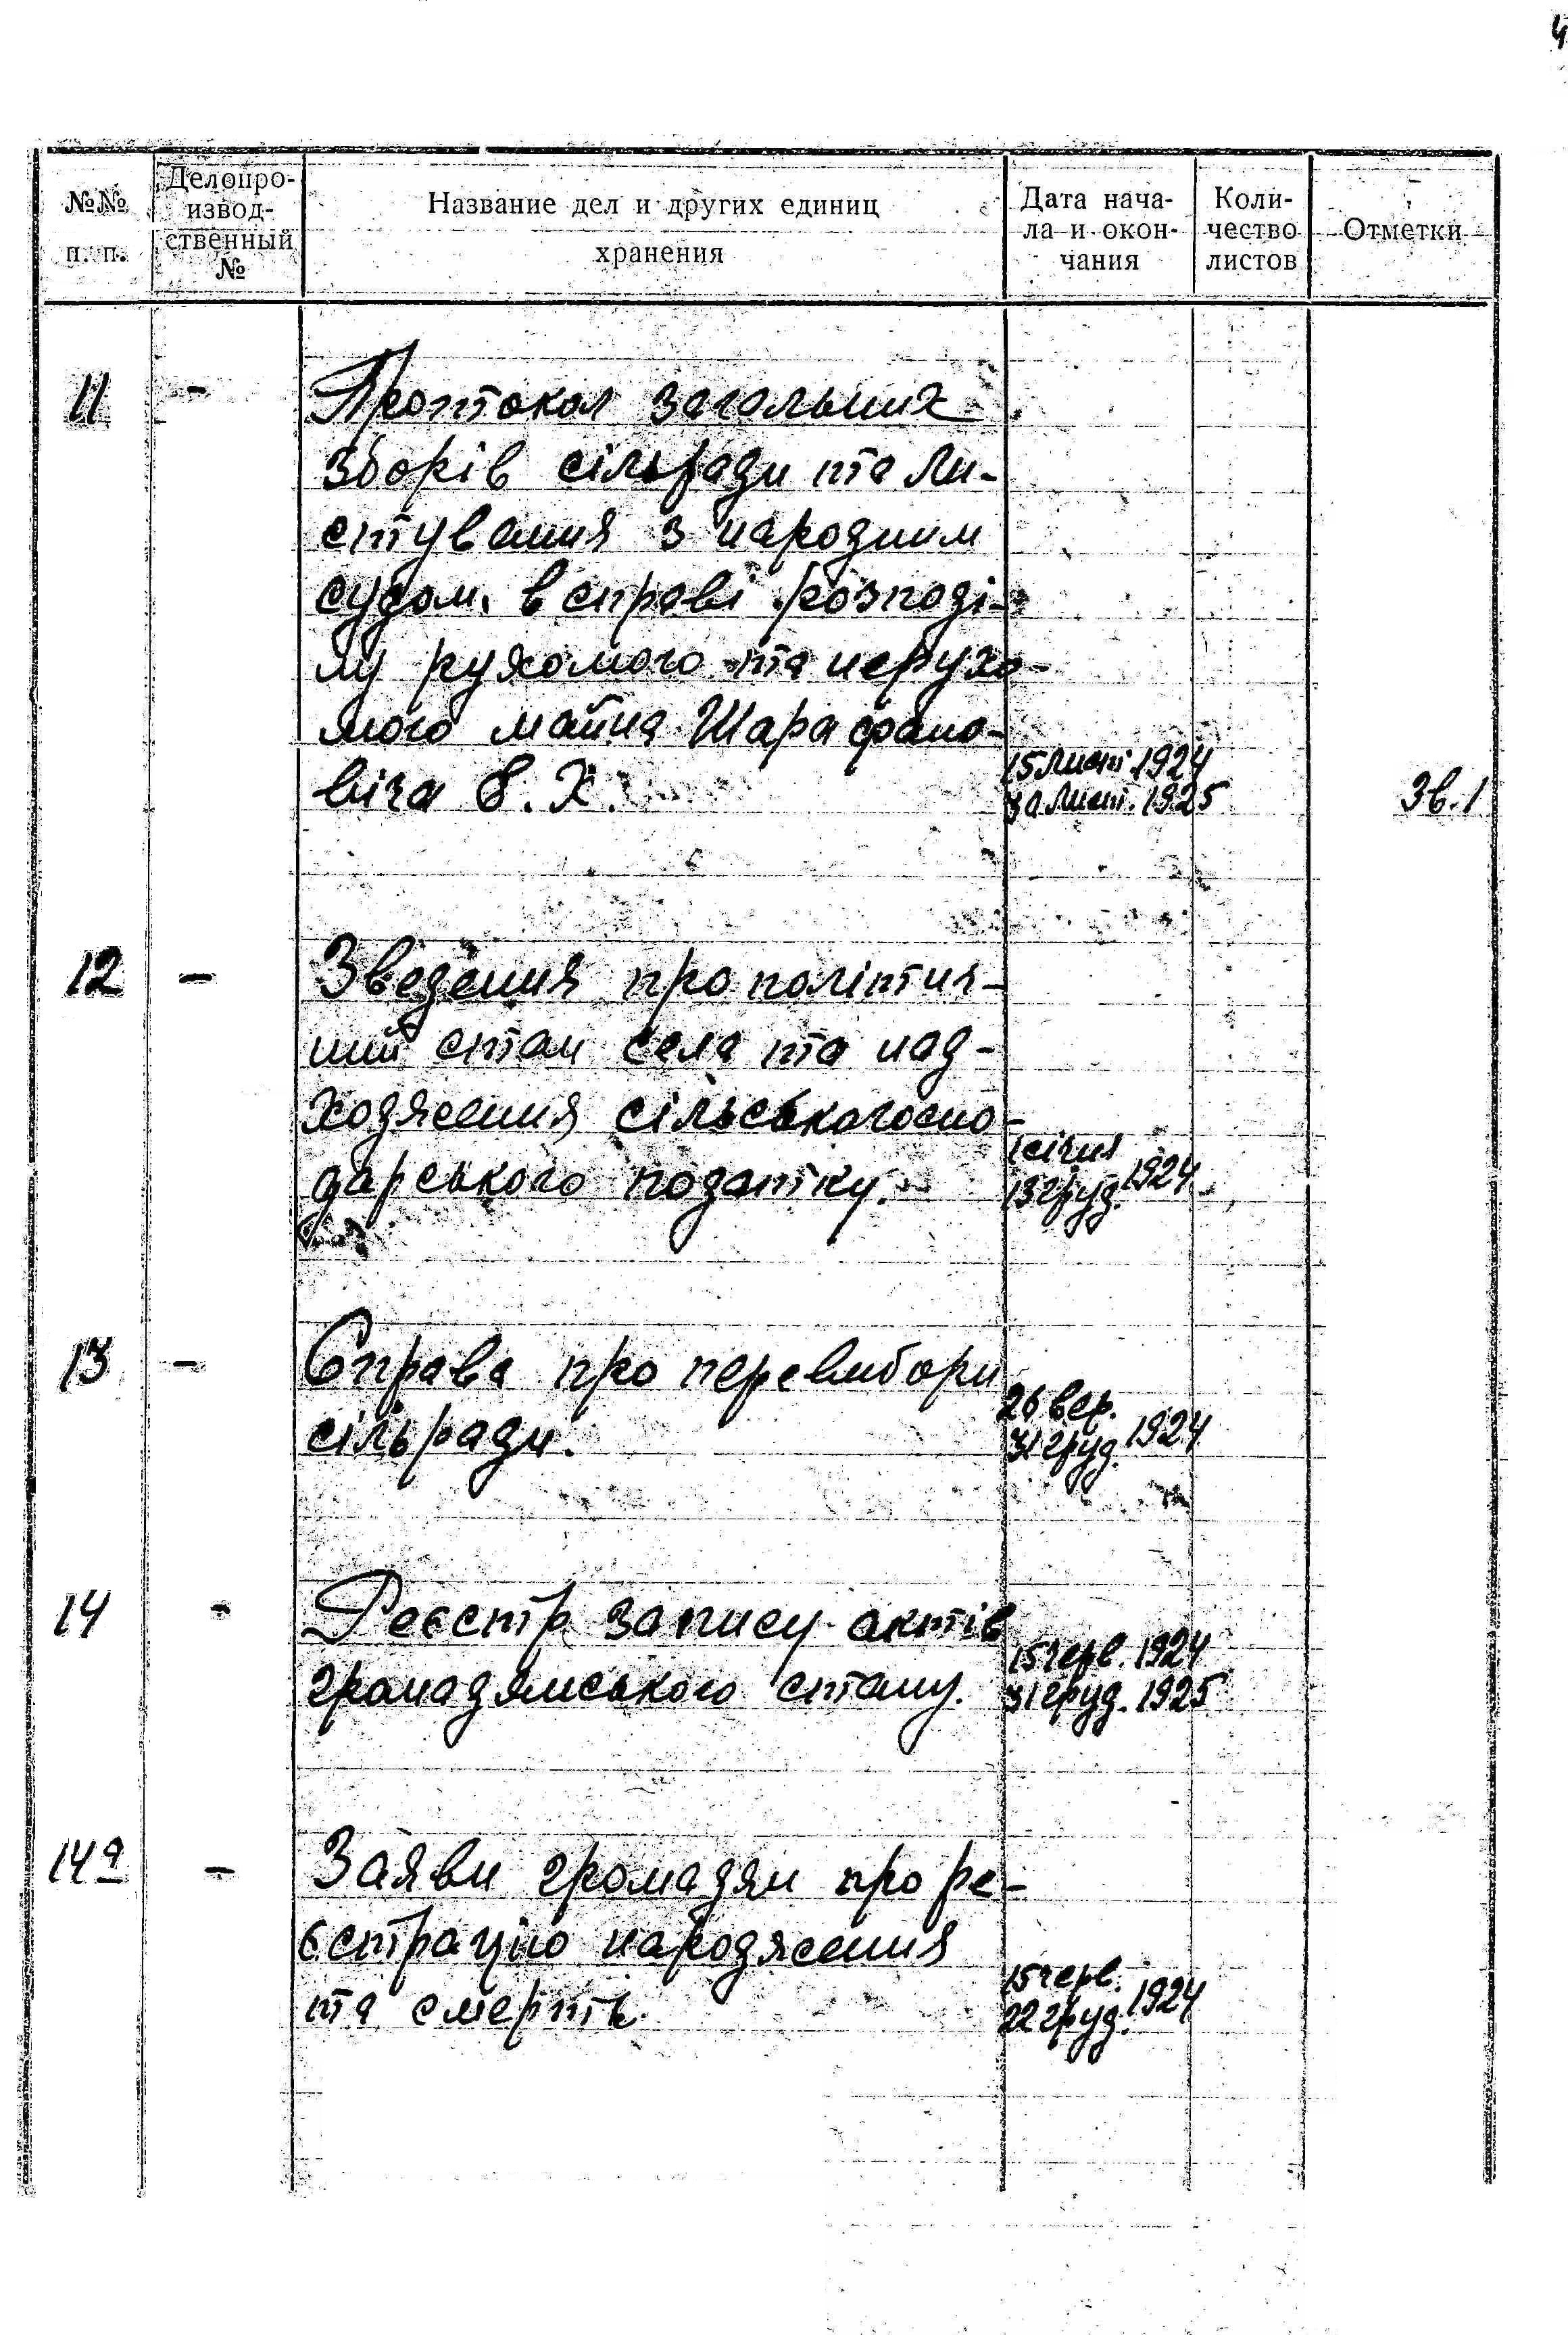 4
№№ п. п.
Делопро-
извод-
ственный
№
Название дел и других единиц
хранения
Дата нача-
ла и окон-
чания
Коли-
чество
листов
Отметки
11 - Протокол загальних
зборів сільради та ли-
стування з народним
судом в справі розподі-
лу рухомого та нерухо-
мого майна Шарафано-
віча Є. Х.
15 лист. 1924
30 лист. 1925
Зв. 1
12 - Зведення про політич-
ний стан села та над-
ходження сільськогоспо-
дарського податку.
1 січня
13 груд. 1924
13 - Справа про перевибори
сільради.
26 вер.
31 груд. 1924
14 - Реєстр запису актів
громадянського стану.
15 черв. 1924
31 груд. 1925
14а - Заяви громадян про ре-
єстрацію народження
та смерть.
15 черв.
22 груд. 1924